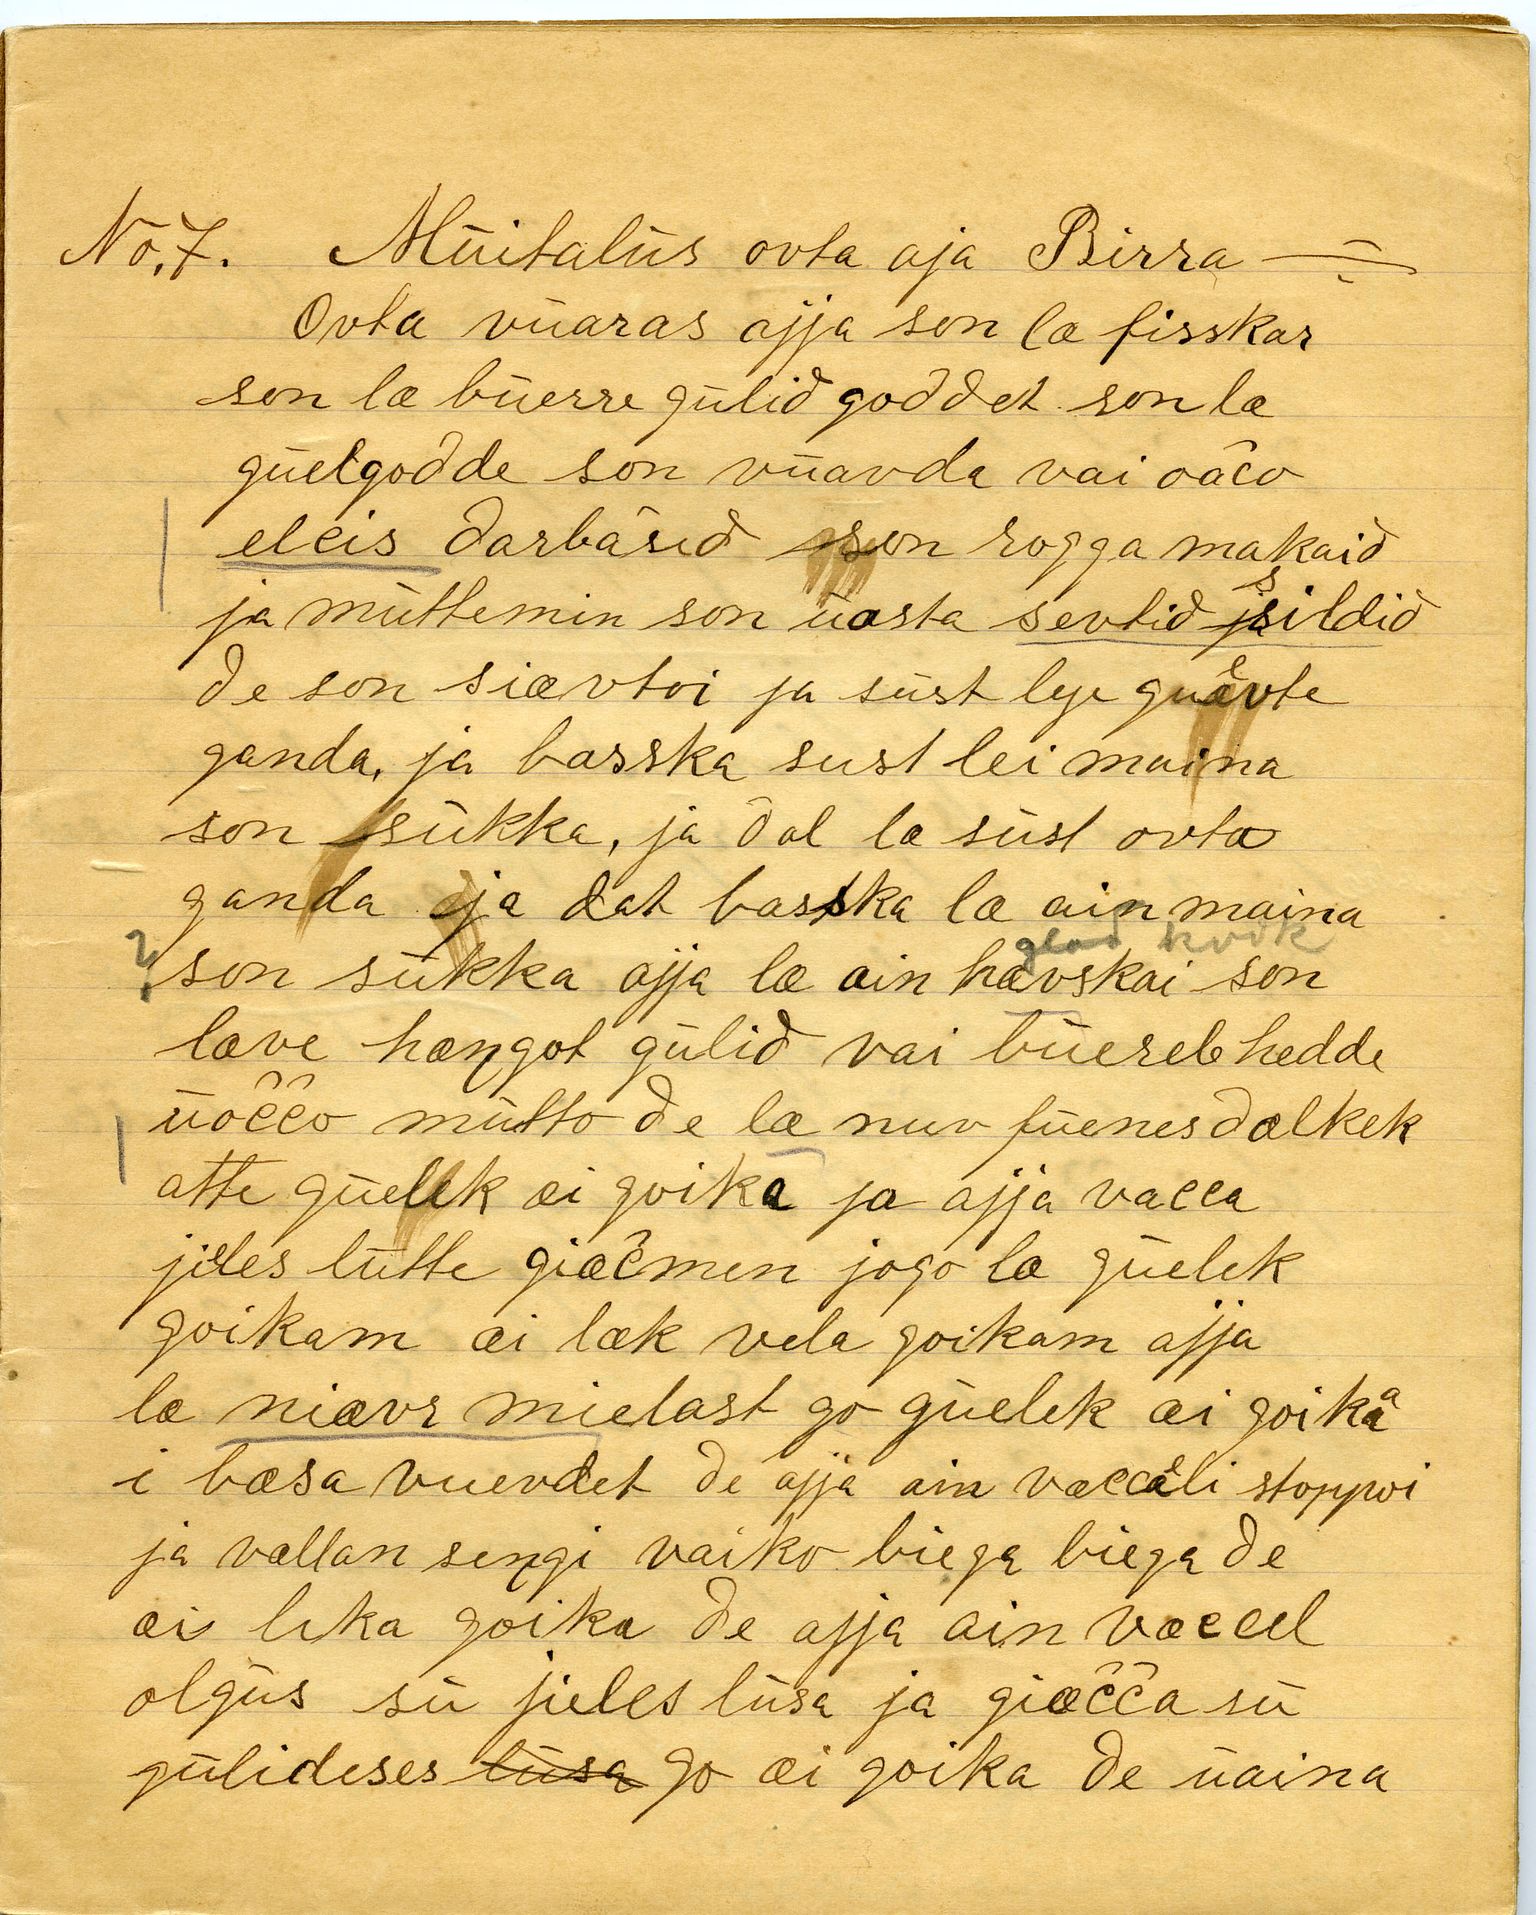 No. 7. Müitalüs ovta aja Birra
Ovta vüaras ajja son læ fisskar
son læ büerre gülid goddet son læ
güelgodde son vüavda vai oâco
elcis darbâsid son rogga makaid
ja müttemin son üasta sevtid sildid
de son siævtoi ja süst leje guævte
ganda, ja basska sust lei maina
son sükka, ja dal læ süst ovta
ganda ja dat basska læ ain maina
glad kvik
? son sükka ajja læ ain hævskai son
læve hæŋgot gülid vai büereb hedde
üoččo mütto de læ nuv füenes dalkek
atte güelek æi goika ja ajja vacca
jieles lütte giæčmen jogo læ güelek
goikam æi læk vela goikam ajja
læ niævr mielast go güelek æi goika
i bæsa vuevdet de ajja ain vaccali stoppoi
ja vallan seŋgi vaiko biega biega de
æi leka goika de ajja ain vaccel
olgüs sü jieles lüsa ja giæčča sü
gülideses lüsa go æi goika de üaina